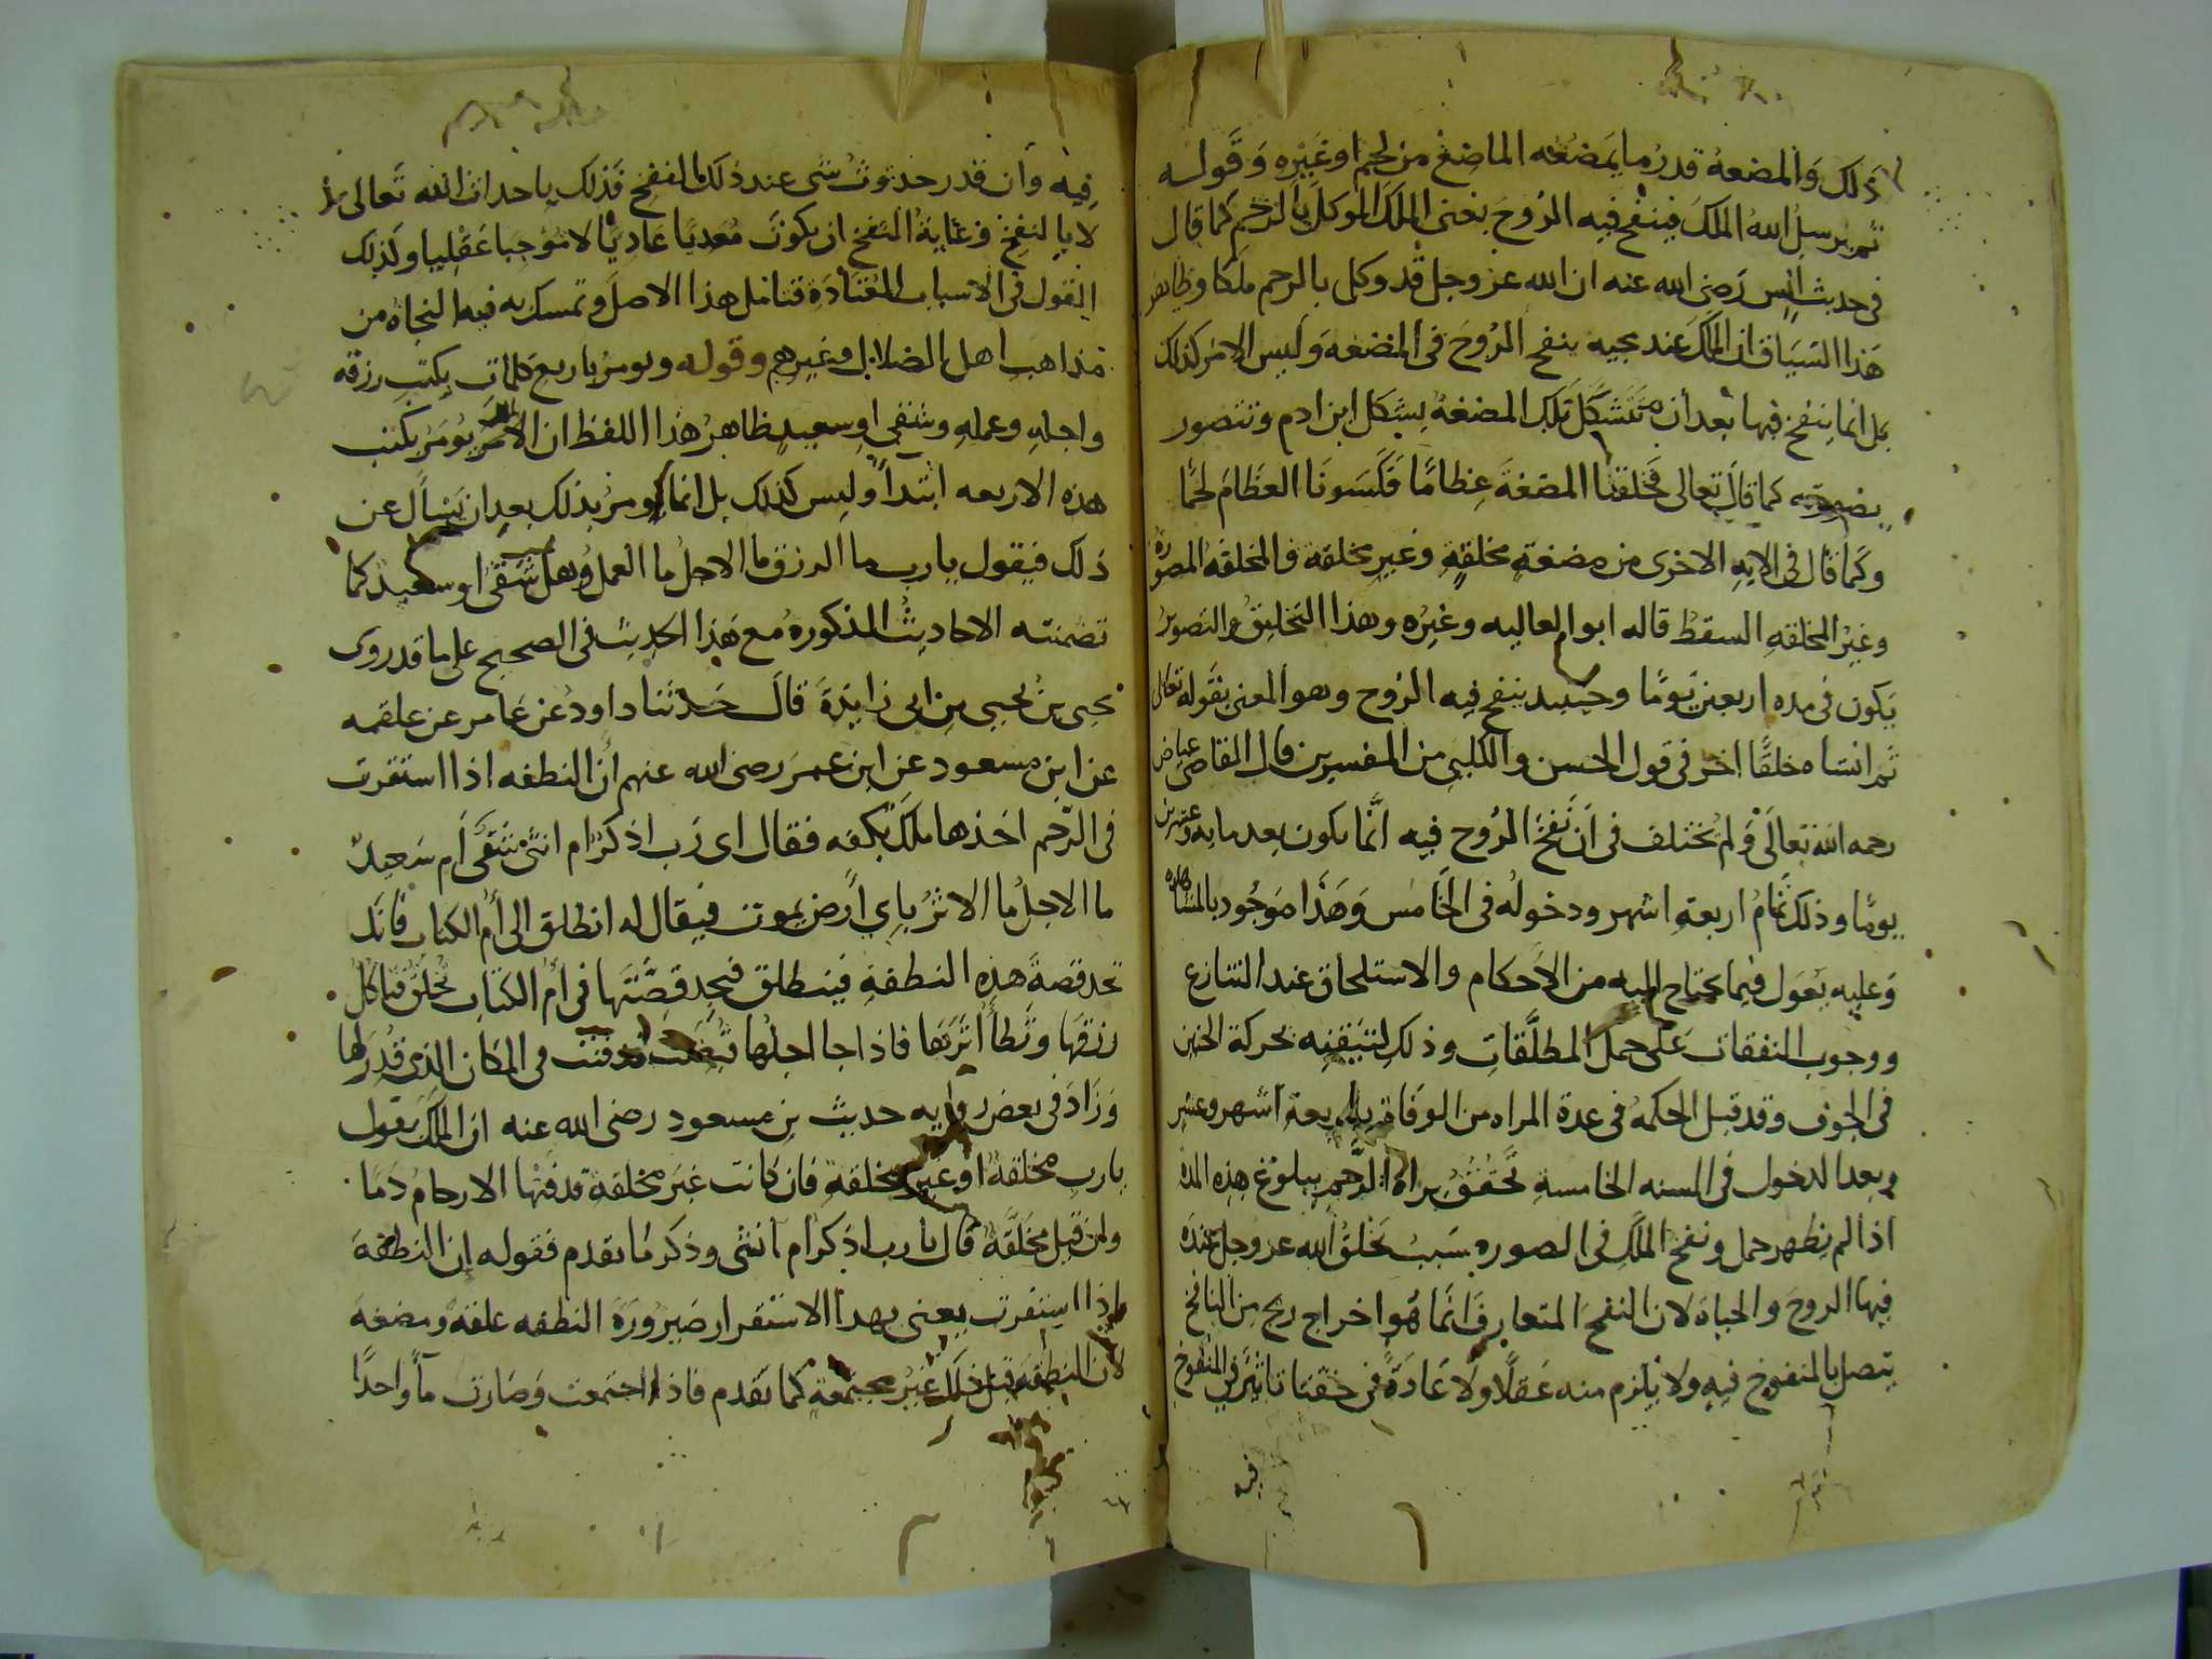 ذلك والمضغة قدر ما يمضغه الماضغ من لحم او غيره وقوله
ثم يرسل الله الملك فينفخ فيه الروح يعنى الملك الموكل بالرحم كما قال
فى حديث انس رضى الله عنه ان الله عز وجل قد وكل بالرحم ملكا وظاهر
هذا السياق ان الملك عند مجيه ينفخ الروح فى المضغه وليس الامر كذلك
بل انما ينفخ فيها بعد أن تتشكل تلك المضغة بشكل ابن ادم وتتصور
بصورته كما قال تعالى فخلقنا المضغة عظامًا فكسونا العظام لحمًا
وكما قال فى الايه الاخرى من مضغة مخلقة وغير مخلقة فالمخلقة المصورة
وغير المخلقه السقط قاله ابو العاليه وغيره وهذا التخليق والتصوير
يكون فى مده اربعين يومًا وحينيد ينفخ فيه الروح وهو المعنى بقوله تعالى
ثم انشاه خلقًا اخر فى قول الحسن والكلبي من المفسرين قال القاضى عياض
رحمه الله تعالى ولم يختلف فى أن نفخ الروح فيه انما يكون بعد مايه وعشرين
يومًا وذلك تمام اربعة اشهر ودخوله فى الخامس وهذا موجود بالمشاهده
وعليه يعول فيما يحتاج اليه من الاحكام والاستلحاق عند التنازع
ووجوب النفقات على حمل المطلقات وذلك لتيقنه بحركة الجنين
فى الجوف وقد قيل الحكمه فى عدة المراه من الوفاة باربعة أشهر وعشر
وبعد الدخول فى السنه الخامسة تحقق براة الرحم ببلوغ هذه المدة
اذا لم يظهر حمل ونفخ الملك فى الصوره سبب يخلق الله عز وجل عنده
فيها الروح والحياة لان النفخ المتعارف انما هو اخراج ريح من النافخ
يتصل بالمنفوخ فيه ولا يلزم منه عقلًا ولا عادةً فى حقنا تاثير فى المنفوخ
فيه
فيه وان قدر حدوث شى عند ذلك النفخ فذلك باحداث الله تعالى
لا بالنفخ وغاية النفخ ان يكون معديًا عاديًا لا موجبا عقليا وكذلك
القول فى الاسباب المعتادة فتامل هذا الاصل وتمسك به فبه النجاة من
مذاهب اهل الضلال وغيرهم وقوله ويومر باربع كلمات يكتب رزقه
واجله وعمله وشقي او سعيد ظاهر هذا اللفظ ان الملك يومر يكتب
هذه الاربعه ابتداً وليس كذلك بل انما يومر بذلك بعد ان يسأل عن
ذلك فيقول يارب ما الرزق ما الاجل ما العمل وهل شقى او سعيد كما
تضمنته الاحاديث المذكوره مع هذا الحديث فى الصحيح على ما قد روى
يحيى بن يحيى بن ابى زايدة قال حدثنا داود عن عامر عن علقمه
عن ابن مسعود عن ابن عمر رضى الله عنهم أن النطفه اذا استقرت
فى الرحم اخذها ملك بكفه فقال اى رب اذكر ام انثى شقى أم سعيد
ما الاجل ما الاثر باي أرض يموت فيقال له انطلق الى أم الكتاب فانك
تجد قصة هذه النطفة فينطلق فيجد قصتها فى أم الكتاب فتخلق فتاكل
رزقها وتطأ اثرها فاذا جا اجلها قبضت فدفنت فى المكان الذى قدر لها
وزاد فى بعض روايه حديث بن مسعود رضى الله عنه ان الملك يقول
يارب مخلقة او غير مخلقة فان كانت غير مخلقة قذفتها الارحام دمًا
وان قيل مخلقة قال يارب اذكر ام انثى وذكر ما تقدم فقوله إن النطفة
اذا استقرت يعنى بهذا الاستقرار صيرورة النطفه علقة ومضغة
لان النطفة قبل ذلك غير مجتمعة كما تقدم فاذا اجتمعت وصارت مآ واحدًا